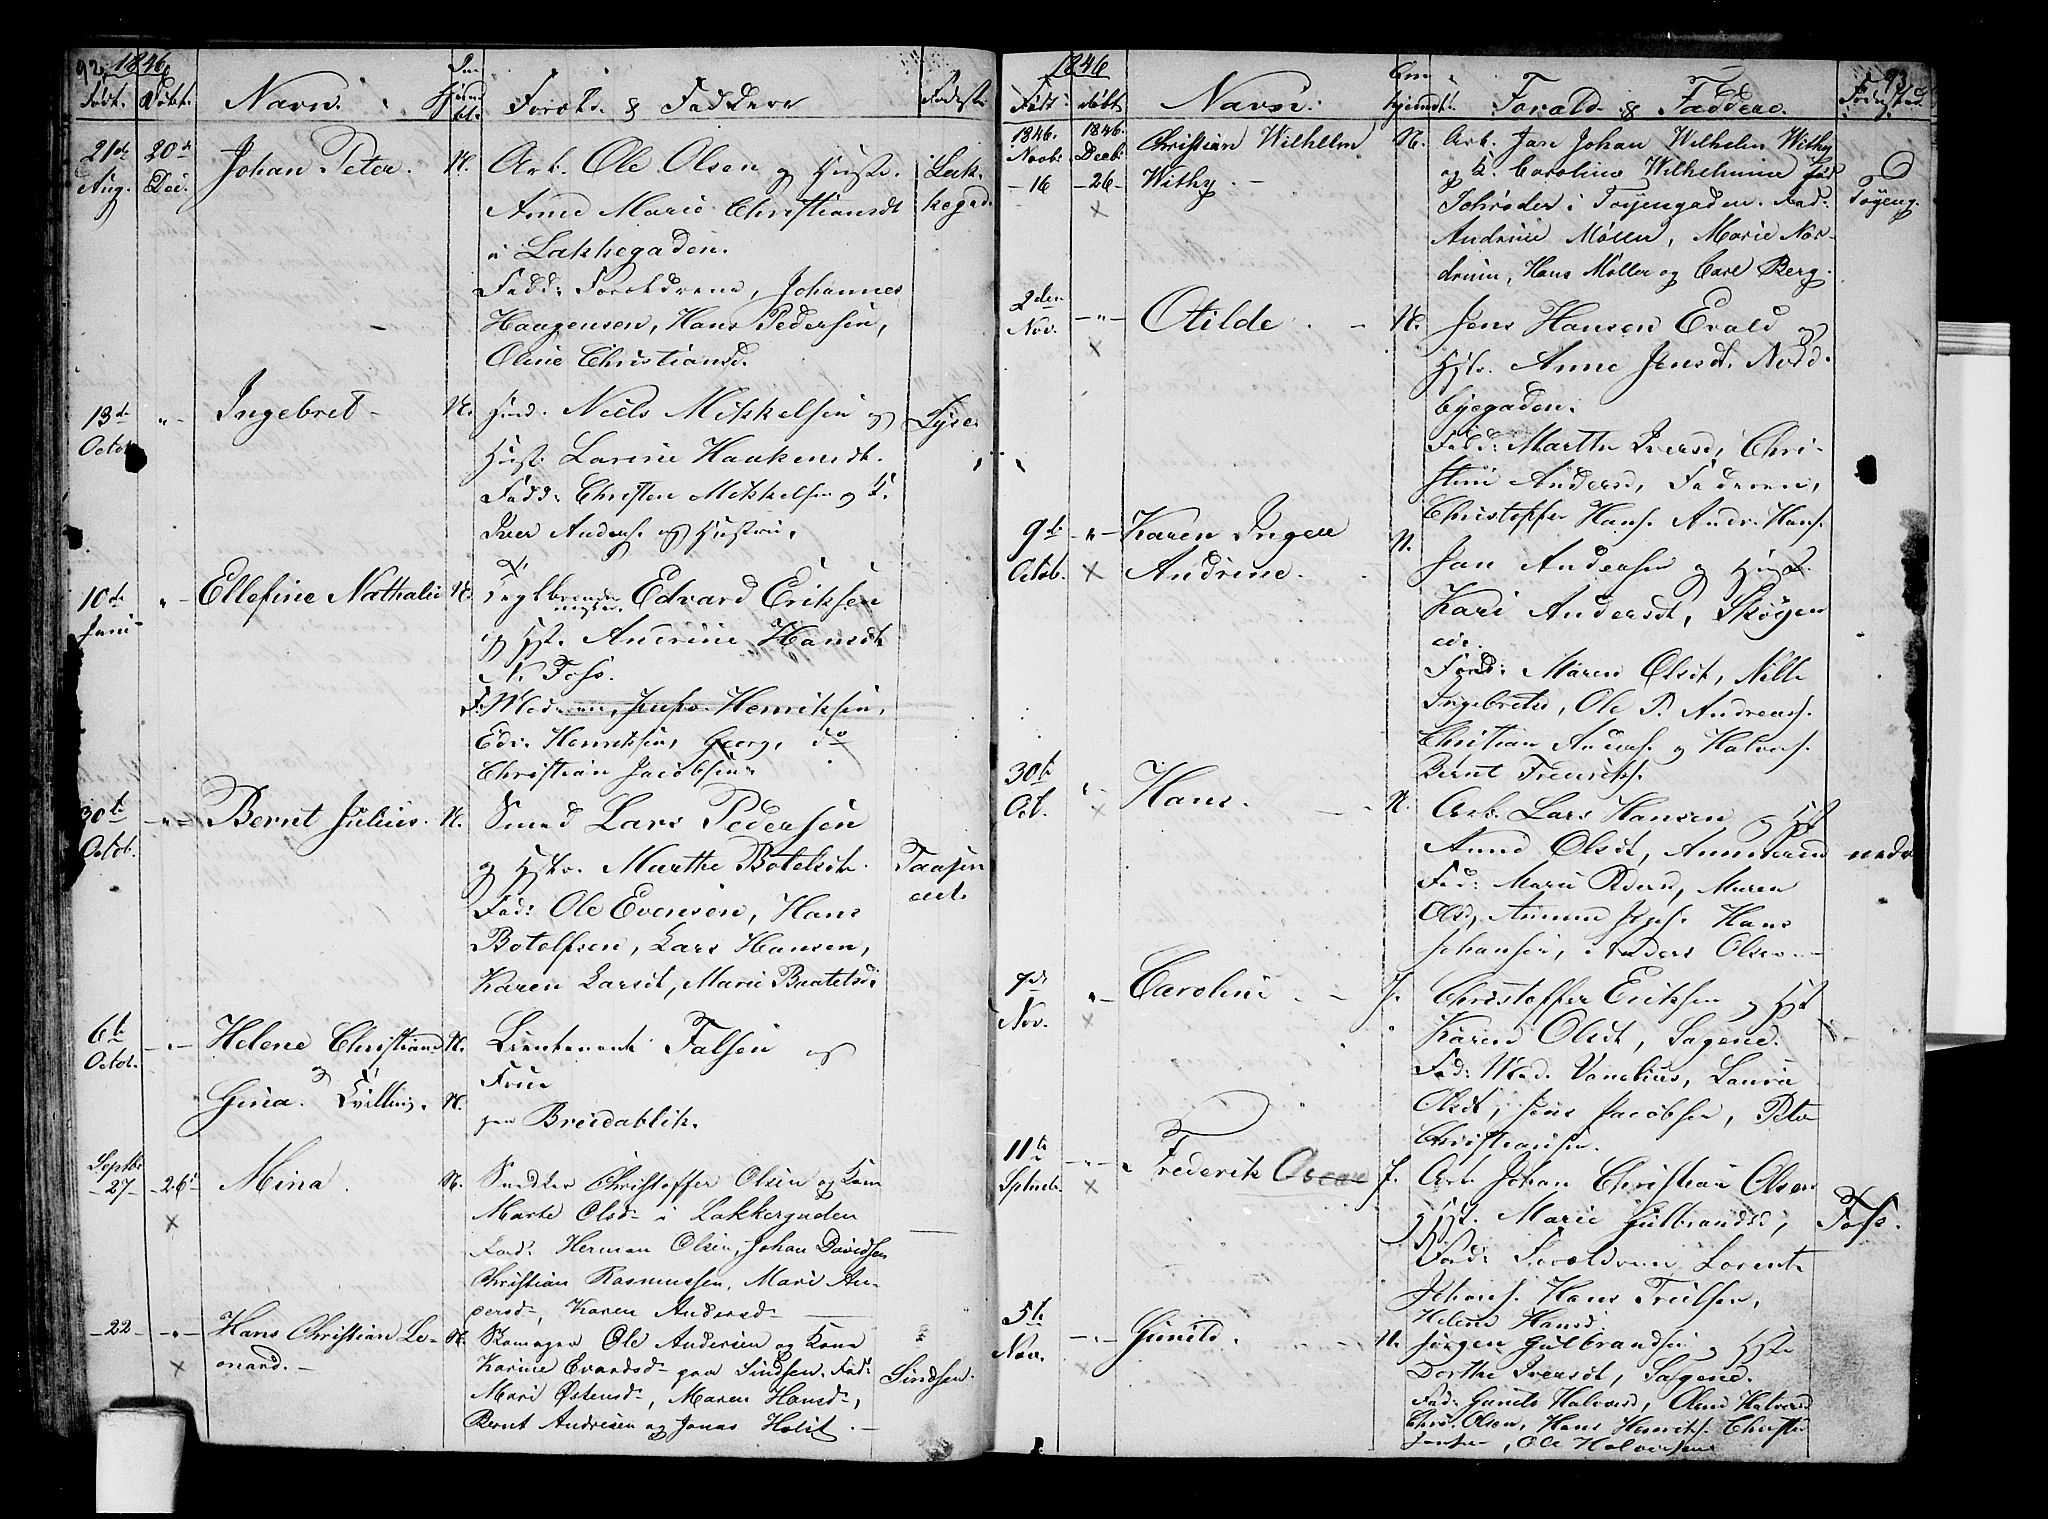 92. 1846
Født. Døbt. Navn. Foræld. & Faddere Fødest.
21de Aug. 20de Dec. Johan Peter. N. Arb. Ole Olsen og Hust. Lak-
Anne Marie Christiansdt kegad.
i Lakkegaden.
Fadd: Forældrene, Johannes
Haagensen, Hans Pedersen,
Oline Christiansd.
13de Octob. -"- Ingebret - N. Niels Mikkelsen og
Hust. Larine Haakensdt.
Fadd: Christen Mikkelsen og K.
Iver Anders. og Hustru.
10de Juni -"- Ellefine Nathalie N. Teglbrænder
mester. Edvard Eriksen
og Hst. Andrine Hansdt
N. Foss.
F: Moderen, Henriksen,
Edv. Henriksen, Georg, do
Christian Jacobsen.
30te Octob. -"- Bernt Julius. N. Smed Lars Pedersen
og Hstr. Marthe Botelsdt. Taasen
Fad: Ole Evensen, Hans eie.
Botolfsen, Lars Hansen,
Karen Larsdt, Marie Baatelsd.
6te Octob. -"- Helene Christiane N. Lieutenant Falsen og
og Frue
Gina. Tvilling. N. paa Breidablik.
Septbr
-27- -26- Mina. N. Snedker Christoffer Olsen og Kone
x Marte Olsd- i Lakkergaden
Fad: Herman Olsen, Johan Davidsen
Christian Rasmussen, Mari An-
dersd-, Karen Andersd-
-22- -"- Hans Christian Le- N. Skomager Ole Andersen og Kone
x onard. - Karine Evardsd- paa Sindsen. Fad: Sindsen.
Mari Østensd-, Maren Hansd-,
Bernt Andresen og Jonas Holst. -
1846 93.
Født. Døbt Navn. Foræld. & Faddere. Fødested.
1846. 1846. Christian Wilhelm N. Arb. Jan Johan Wilhelm Withy
Novbr Decbr Withy. - og K. Caroline Wilhelmine fød
-16 -26- Schrøder i Tøyengaden. Fad: Tøyeng.
x Andrine Møller, Marie Nor-
drum, Hans Møller og Carl Berg.
2den Nov. -"- Otilde N. Jens Hansen Evald og
x Hstr. Anne Jensdt. Nord-
byegaden.
Fad: Marthe Iversd, Chri-
stine Andersd, Faderen,
Christoffer Hans. Andr. Hans.
9de Octob. -"- Karen Inger N. Jan Andersen og Hust.
x Andrine. Kari Andersdt, Skøyen
eie.
Fad: Maren Olsdt, Nille
Ingebretsd, Ole P. Andreas.
Christian Anders. og Halvors.
Bernt Fredriks.
30te Oct. -"- Hans. N. Arb. Lars Hansen og Hst
x Anne Olsdt, Annerud
Fad: Marie Maren
Ols, Hans
Johansen, Anders Olsen. -
7de Nov. -"- Caroline J. Christoffer Eriksen og Hst
x Karen Olsdt, Sagene.
Fad: Mad. Vanelius, Laura
Olsdt, Jens Jacobsen, Peter
Christiansen.
11te Sptmb. -"- Frederik Oscar J. Arb. Johan Christian Olsen
x og Hst. Marie Gulbrandsd, Foss.
Fad: Forældrene Lorents
Johans. Hans Troilsen,
Helene Hansd.
5te Nov. -"- Gunild. N. Jørgen Gulbrandsen og Hstr
x Dorthe Iversdt, Sagene.
Fad: Gunild Halvorsd, Oline Halvorsd
Chr. Olsen, Hans Henriks. Christen
Jensen, Ole Halvorsen